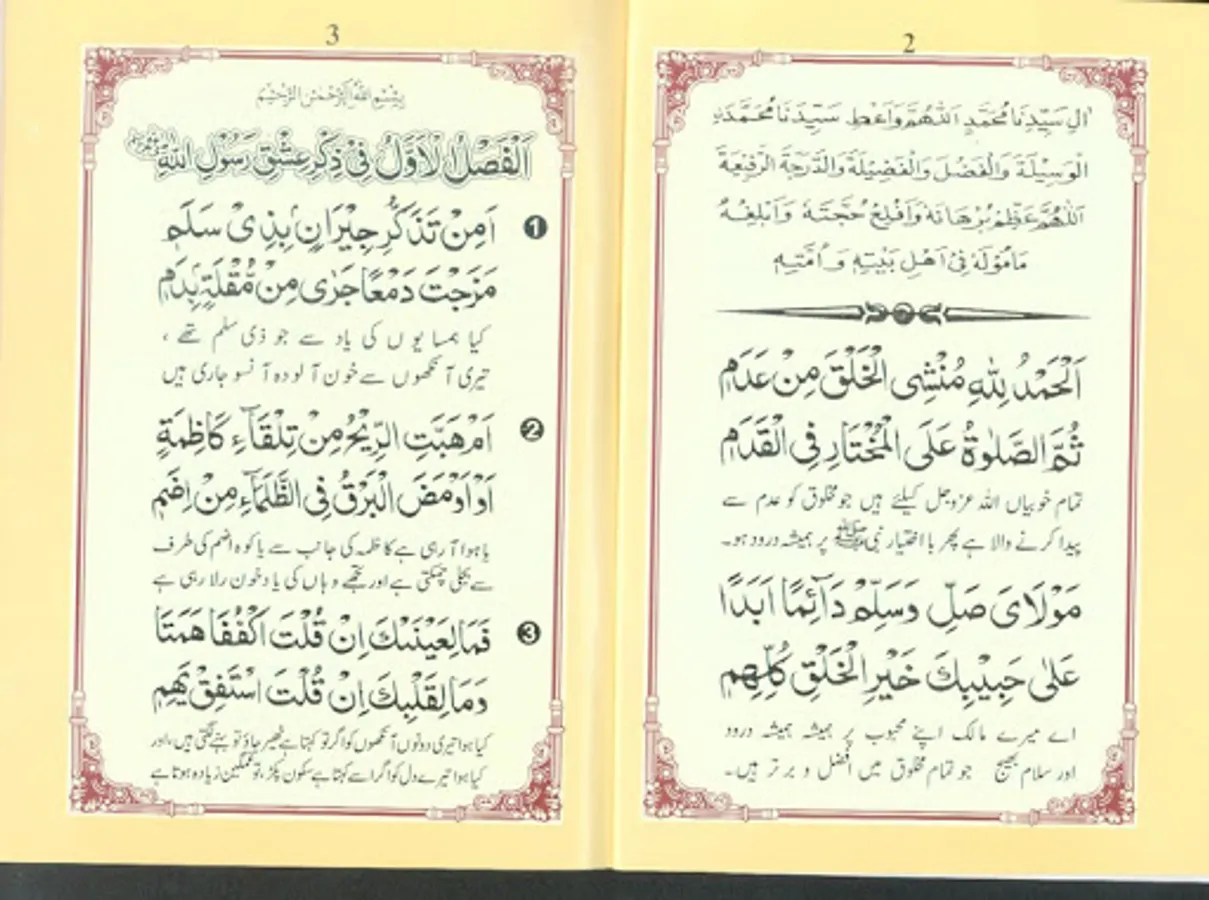 2
اٰلِ سَيِّدِنَا مُحَمَّدٍ اَللّٰهُمَّ وَاَعْطِ سَيِّدَنَا مُحَمَّدَنِ
الْوَسِيْلَةَ وَالْفَضْلَ وَالْفَضِيْلَةَ وَالدَّرَجَةَ الرَّفِيْعَةَ
اَللّٰهُمَّ عَظِّمْ بُرْهَانَهٗ وَاَفْلِجْ حُجَّتَهٗ وَاَبْلِغْهُ
مَأْمُوْلَهٗ فِىْ اَهْلِ بَيْتِهٖ وَاُمَّتِهٖ
اَلْحَمْدُ لِلّٰهِ مُنْشِى الْخَلْقِ مِنْ عَدَمِ
ثُمَّ الصَّلٰوةُ عَلَى الْمُخْتَارِ فِى الْقَدَمِ
تمام خوبیاں اللہ عزوجل کیلئے ہیں جو مخلوق کو عدم سے
پیدا کرنے والا ہے پھر با اختیار نبی ﷺ پر ہمیشہ درود ہو۔
مَوْلَاىَ صَلِّ وَسَلِّمْ دَآئِمًا اَبَدًا
عَلٰى حَبِيْبِكَ خَيْرِ الْخَلْقِ كُلِّهِمِ
اے میرے مالک اپنے محبوب پر ہمیشہ ہمیشہ درود
اور سلام بھیج جو تمام مخلوق میں افضل و برتر ہیں۔
3
بِسْمِ اللهِ الرَّحْمٰنِ الرَّحِيْمِ
اَلْفَصْلُ الْاَوَّلُ فِىْ ذِكْرِ عِشْقِ رَسُوْلِ اللهِ
1 اَمِنْ تَذَكُّرِ جِيْرَانٍۭ بِذِىْ سَلَمِ
مَزَجْتَ دَمْعًا جَرٰى مِنْ مُّقْلَةٍۭ بِدَمِ
کیا ہمسایوں کی یاد سے جو ذی سلم تھے ،
تیری آنکھوں سے خون آلودہ آنسو جاری ہیں
2 اَمْ هَبَّتِ الرِّيْحُ مِنْ تِلْقَآءِ كَاظِمَةٍ
اَوْ اَوْمَضَ الْبَرْقُ فِى الظَّلْمَآءِ مِنْ اِضَمِ
یا ہوا آ رہی ہے کاظمہ کی جانب سے یا کوہ اضم کی طرف
سے بجلی چمکتی ہے اور تجھے وہاں کی یاد خون رلا رہی ہے
3 فَمَا لِعَيْنَيْكَ اِنْ قُلْتَ اكْفُفَا هَمَتَا
وَمَا لِقَلْبِكَ اِنْ قُلْتَ اسْتَفِقْ يَهِمِ
کیا ہوا تیری دونوں آنکھوں کو اگر تو کہتا ہے ٹھیر جاؤ تو بہنے لگتی ہیں، اور
کیا ہوا تیرے دل کو اگر اسے کہتا ہے سکون پکڑ، تو غمگین زیادہ ہوتا ہے